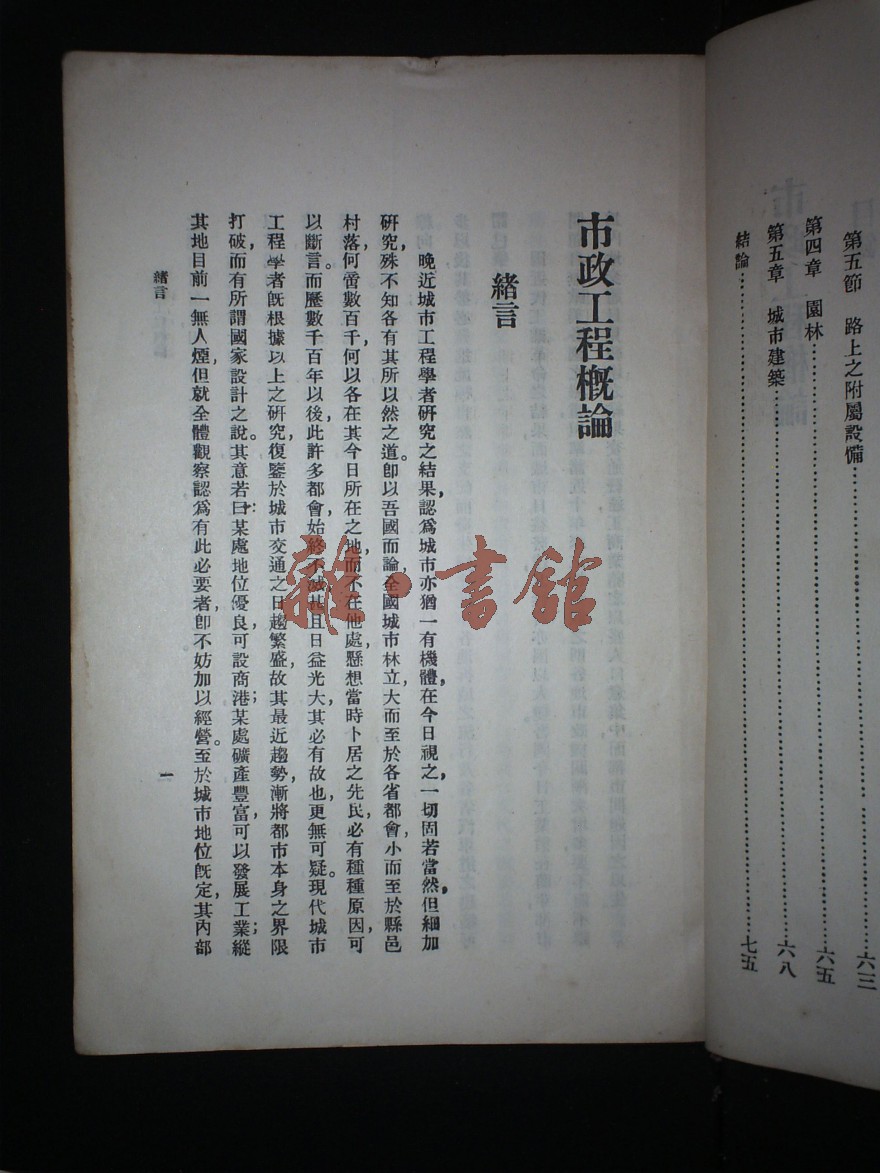 第五節　路上之附屬設備…………六三
第四章　園林…………六五
第五章　城市建築…………六八
結論…………七五
市政工程概論
緒言
晚近城市工程學者研究之結果，認爲城市亦猶一有機體，在今日視之，一切固若當然，但細加
研究，殊不知各有其所以然之道。卽以吾國而論，全國城市林立，大而至於各省都會，小而至於縣邑
村落，何啻數百千，何以各在其今日所在之地，而不在他處，懸想當時卜居之先民，必有種種原因，可
以斷言。而歷數千百年以後，此許多都會，始終不滅，甚且日益光大，其必有故也，更無可疑。現代城市
工程學者旣根據以上之研究，復鑒於城市交通之日趨繁盛，故其最近趨勢，漸將都市本身之界限
打破，而有所謂國家設計之說。其意若曰：某處地位優良，可設商港；某處礦產豐富，可以發展工業；縱
其地目前一無人煙，但就全體觀察，認爲有此必要者，卽不妨加以經營。至於城市地位旣定，其內部
緒言
一
雜·書館